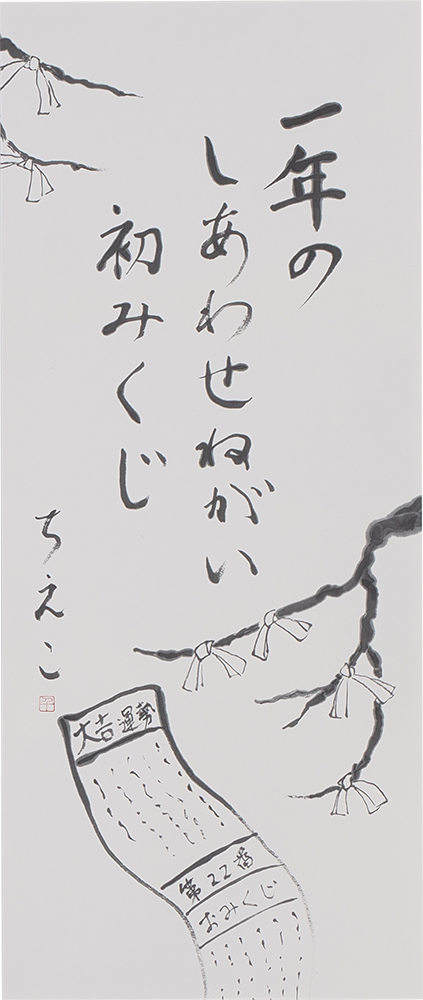 一年の
しあわせねがい
初みくじ
ちえこ
大吉運勢
第22番
おみくじ